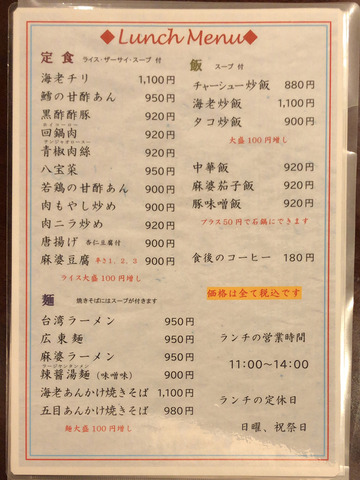 ◆Lunch Menu◆
定食 ライス・ザーサイ・スープ 付
海老チリ 1,100円
鱈の甘酢あん 950円
黒酢酢豚 920円
ホイコーロー
回鍋肉 920円
チンジャオロースー
青椒肉絲 920円
八宝菜 950円
若鶏の甘酢あん 900円
肉もやし炒め 900円
肉ニラ炒め 920円
唐揚げ 杏仁豆腐付 900円
麻婆豆腐 辛さ1、2、3 900円
ライス大盛100円増し
麺 焼きそばにはスープが付きます
台湾ラーメン 950円
広東麺 950円
麻婆ラーメン 950円
ラージャンタンメン
辣醤湯麺 (味噌味) 900円
海老あんかけ焼きそば 1,100円
五目あんかけ焼きそば 980円
麺大盛100円増し
飯 スープ 付
チャーシュー炒飯 880円
海老炒飯 1,100円
タコ炒飯 900円
大盛100円増し
中華飯 920円
麻婆茄子飯 920円
豚味噌飯 920円
プラス50円で石鍋にできます
食後のコーヒー 180円
価格は全て税込です
ランチの営業時間
11:00~14:00
ランチの定休日
日曜、祝祭日